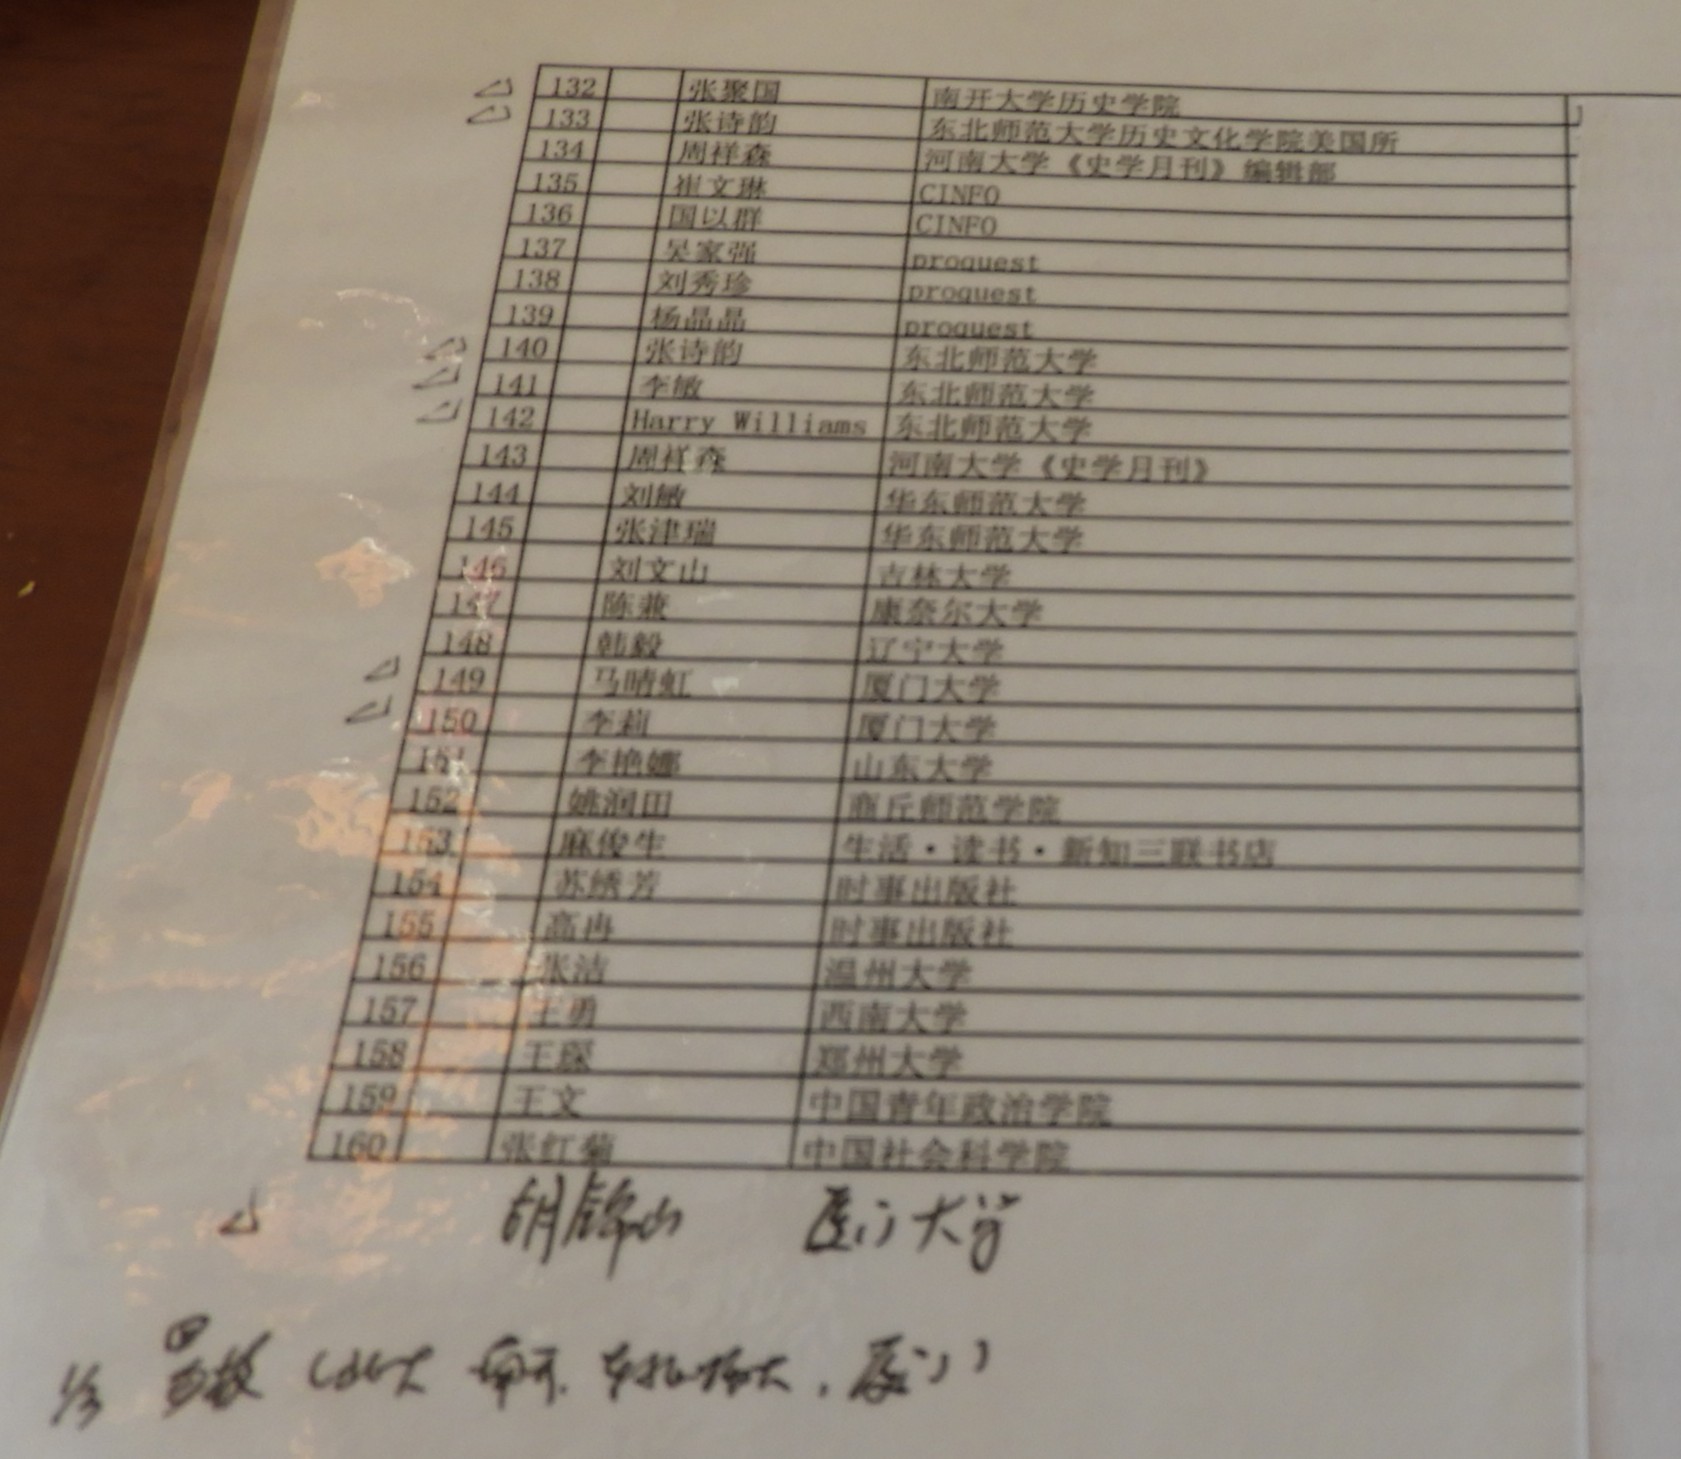 132 张聚国 南开大学历史学院
133 张诗韵 东北师范大学历史文化学院美国所
134 周祥森 河南大学《史学月刊》编辑部
135 崔文琳 CINFO
136 国以群 CINFO
137 吴家强 proquest
138 刘秀珍 proquest
139 杨晶晶 proquest
140 张诗韵 东北师范大学
141 李敏 东北师范大学
142 Harry Williams 东北师范大学
143 周祥森 河南大学《史学月刊》
144 刘敏 华东师范大学
145 张津瑞 华东师范大学
146 刘文山 吉林大学
147 陈兼 康奈尔大学
148 韩毅 辽宁大学
149 马晴虹 厦门大学
150 李莉 厦门大学
151 李艳娜 山东大学
152 姚润田 商丘师范学院
153 麻俊生 生活·读书·新知三联书店
154 苏绣芳 时事出版社
155 高冉 时事出版社
156 张洁 温州大学
157 王勇 西南大学
158 王琛 郑州大学
159 王文 中国青年政治学院
160 张红菊 中国社会科学院
胡锦山 厦门大学
四校（北大 南开. 东北师大, 厦门）